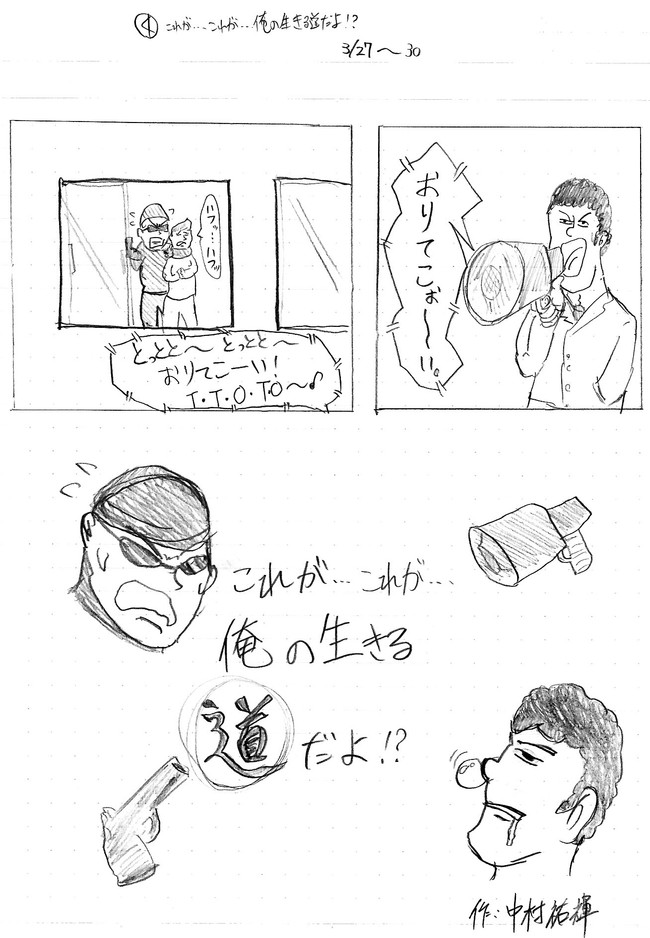 ① これが…これが…俺の生きる道だよ!?
3/27〜30
おりてこぉ〜〜い。
ハフッ…ハフッ
とっとど〜 とっとと〜
おりてこーい!
T・T・O・T・O〜♪
これが…これが…
俺の生きる
道だよ!?
作:中村祐輝